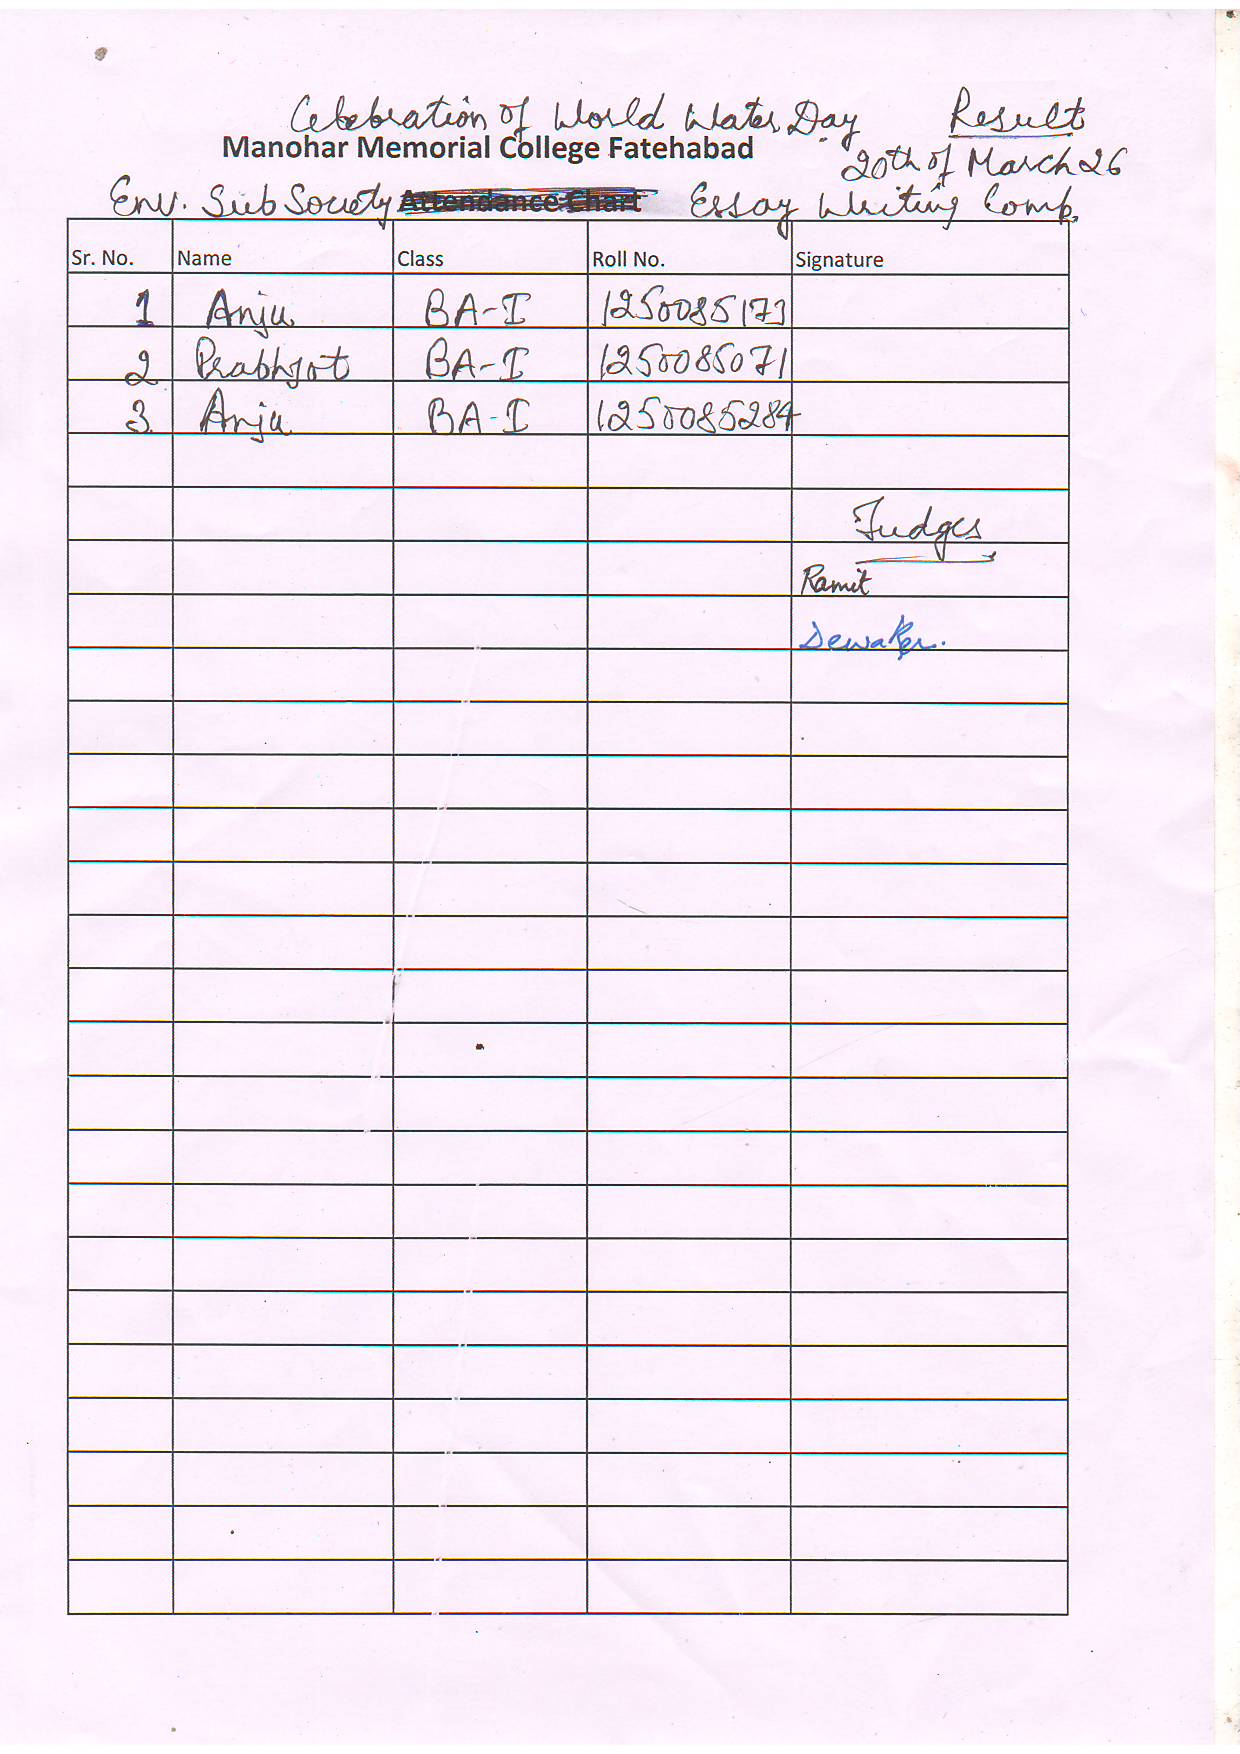 Celebration of World Water Day Result
Manohar Memorial College Fatehabad
20th of March 26
Env. Sub Society Attendance Chart Essay Writing Comp.
Sr. No. Name Class Roll No. Signature
1 Anju BA-I 1250085173
2 Prabhjot BA-I 1250085071
3 Anju BA-I 1250085284
Judges
Ramit
Dewaker.